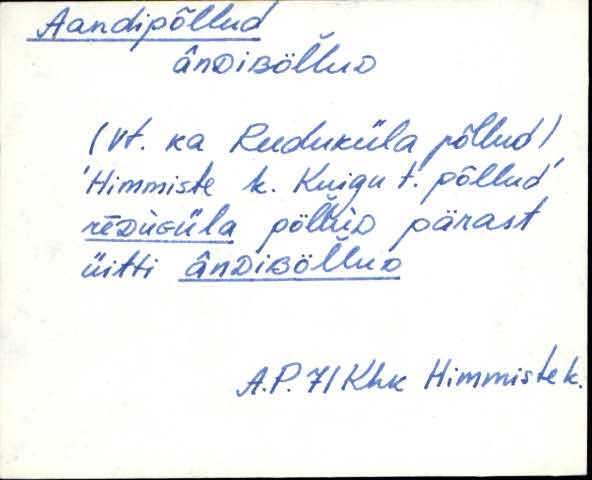 Aandipõllud
ânDiʙöl̆luD
(vt. ka Reeduküla põllud)
'Himmiste k. Kuigu t. põllud'
rēDüɢüla põl̆luD pärast
üitti ânDiʙöl̆luD
A.P. 71 Khk Himmiste k.